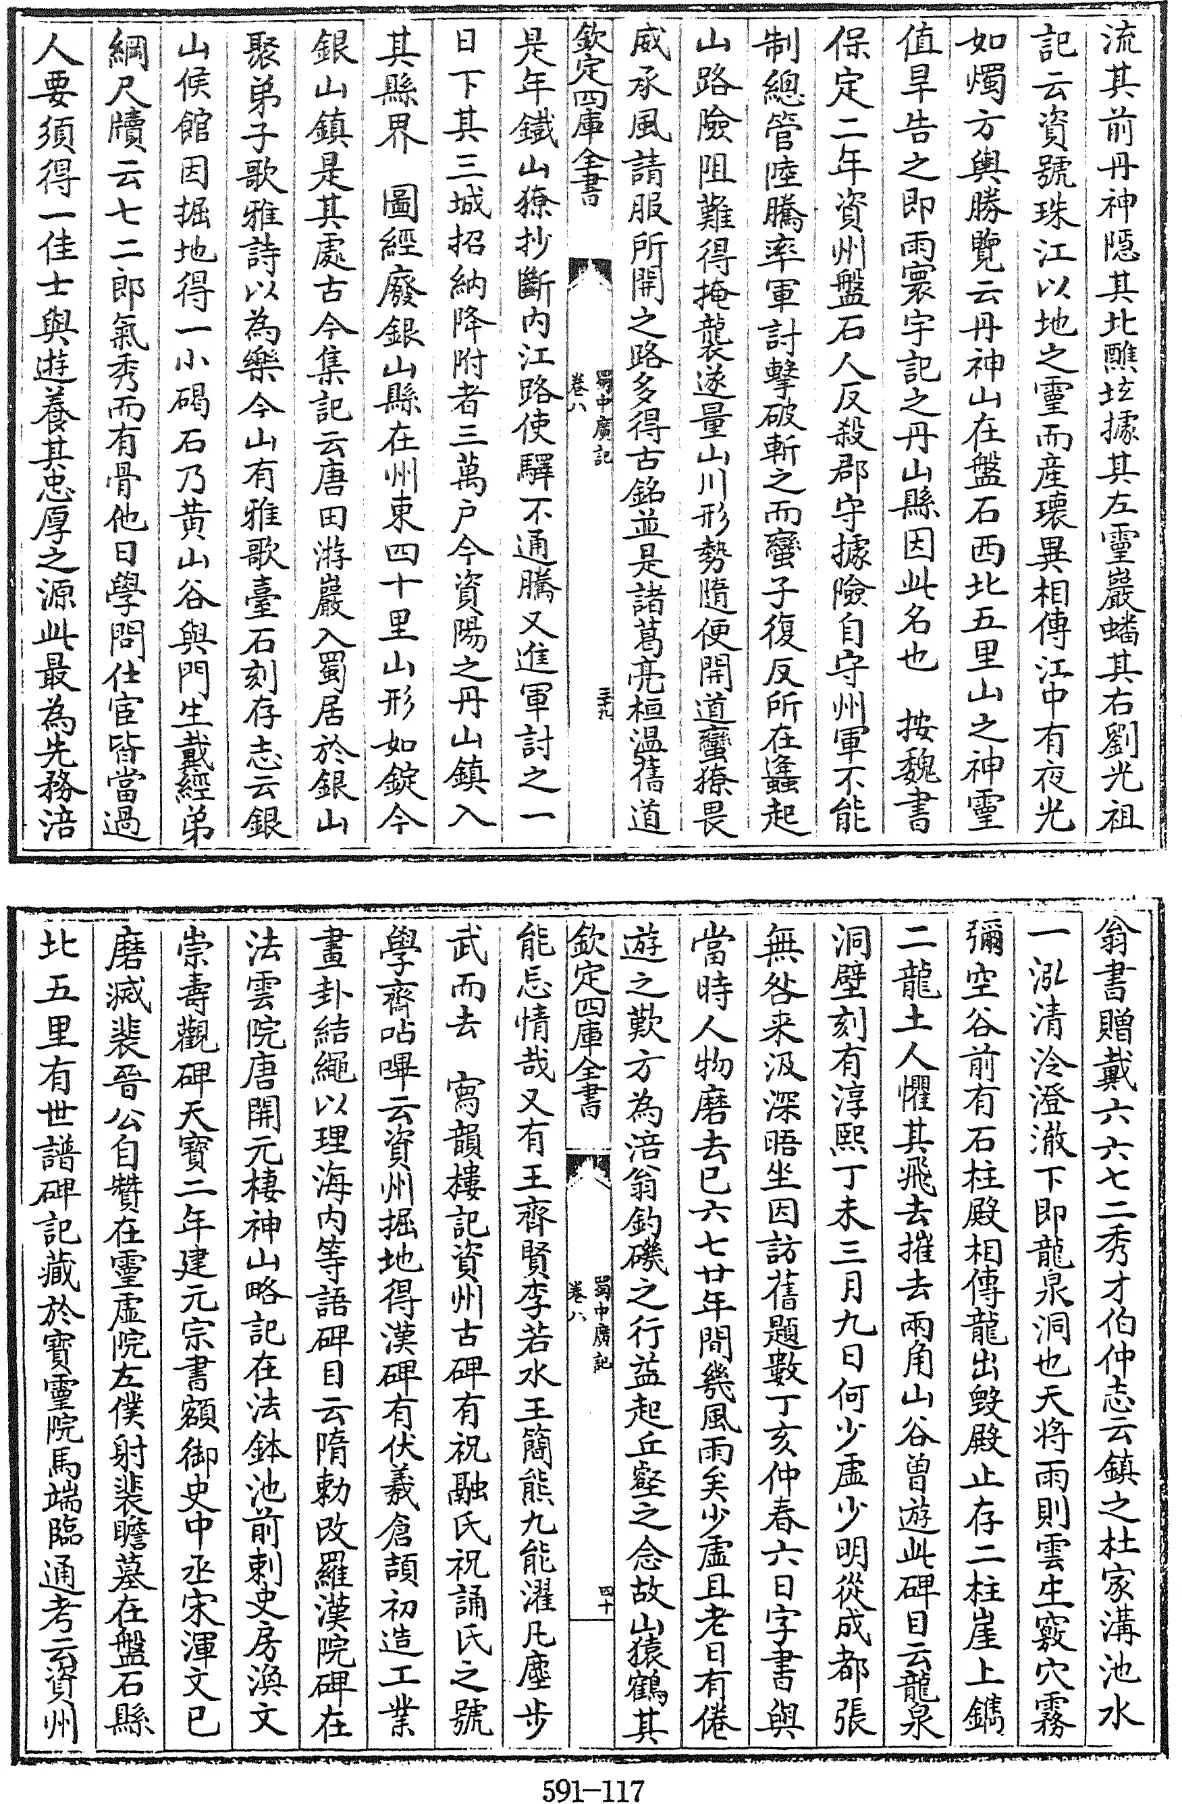 流其前丹神隱其北醮壇據其左靈巖蟠其右劉光祖
記云資號珠江以地之靈而產瓌異相傳江中有夜光
如燭方輿勝覽云丹神山在盤石西北五里山之神靈
值旱告之即雨寰宇記之丹山縣因此名也　按魏書
保定二年資州盤石人反殺郡守據險自守州軍不能
制總管陸騰率軍討擊破斬之而蠻子復反所在蠭起
山路險阻難得掩襲遂量山川形勢隨便開道蠻獠畏
威承風請服所開之路多得古銘並是諸葛亮桓温舊道
欽定四庫全書
蜀中廣記
卷八
三十九
是年鐵山獠抄斷内江路使驛不通騰又進軍討之一
日下其三城招納降附者三萬户今資陽之丹山鎮入
其縣界　圖經廢銀山縣在州東四十里山形如錠今
銀山鎮是其處古今集記云唐田游巖入蜀居於銀山
聚弟子歌雅詩以為樂今山有雅歌臺石刻存志云銀
山候館因掘地得一小碣石乃黄山谷與門生戴經弟
綱尺牘云七二郎氣秀而有骨他日學問仕宦皆當過
人要須得一佳士與遊養其忠厚之源此最為先務涪
翁書贈戴六六七二秀才伯仲志云鎮之杜家溝池水
一泓清泠澄澈下即龍泉洞也天將雨則雲生竅穴霧
彌空谷前有石柱殿相傳龍出毁殿止存二柱崖上鐫
二龍土人懼其飛去摧去兩角山谷曾遊此碑目云龍泉
洞壁刻有淳熙丁未三月九日何少虚少明從成都張
無咎来汲深晤坐因訪舊題數丁亥仲春六日字書與
當時人物磨去已六七廿年間幾風雨矣少虚且老日有倦
遊之歎方為涪翁釣磯之行益起丘壑之念故山猿鶴其
欽定四庫全書
蜀中廣記
卷八
四十
能忘情哉又有王齊賢李若水王簡熊九能濯凡塵步
武而去　寫韻樓記資州古碑有祝融氏祝誦氏之號
學齋呫嗶云資州掘地得漢碑有伏羲倉頡初造工業
畫卦結繩以理海内等語碑目云隋勅改羅漢院碑在
法雲院唐開元棲神山略記在法鉢池前刺史房渙文
崇壽觀碑天寶二年建元宗書額御史中丞宋渾文已
磨滅裴晉公自贊在靈虚院左僕射裴瞻墓在盤石縣
北五里有世譜碑記藏於寶靈院馬端臨通考云資州
591-117